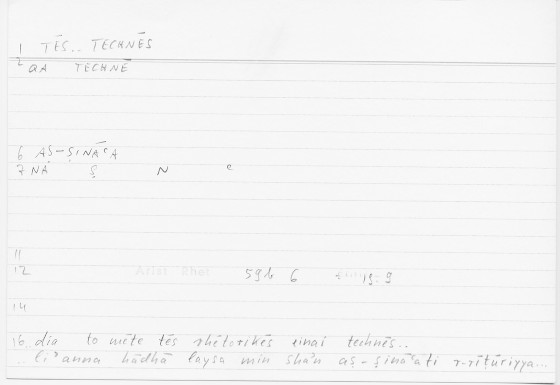 1 TĒS.. TECHNĒS
2 QA TECHNĒ
6 AṢ-ṢINĀʿA
7 NA Ṣ N ʿ
11
12 Arist Rhet 59b 6 19.9
14
16 dia to mēte tēs rhētorikēs einai technēs..
.. li'anna hādhā laysa min sha'n aṣ-ṣināʿati r-rīṭūriyya...